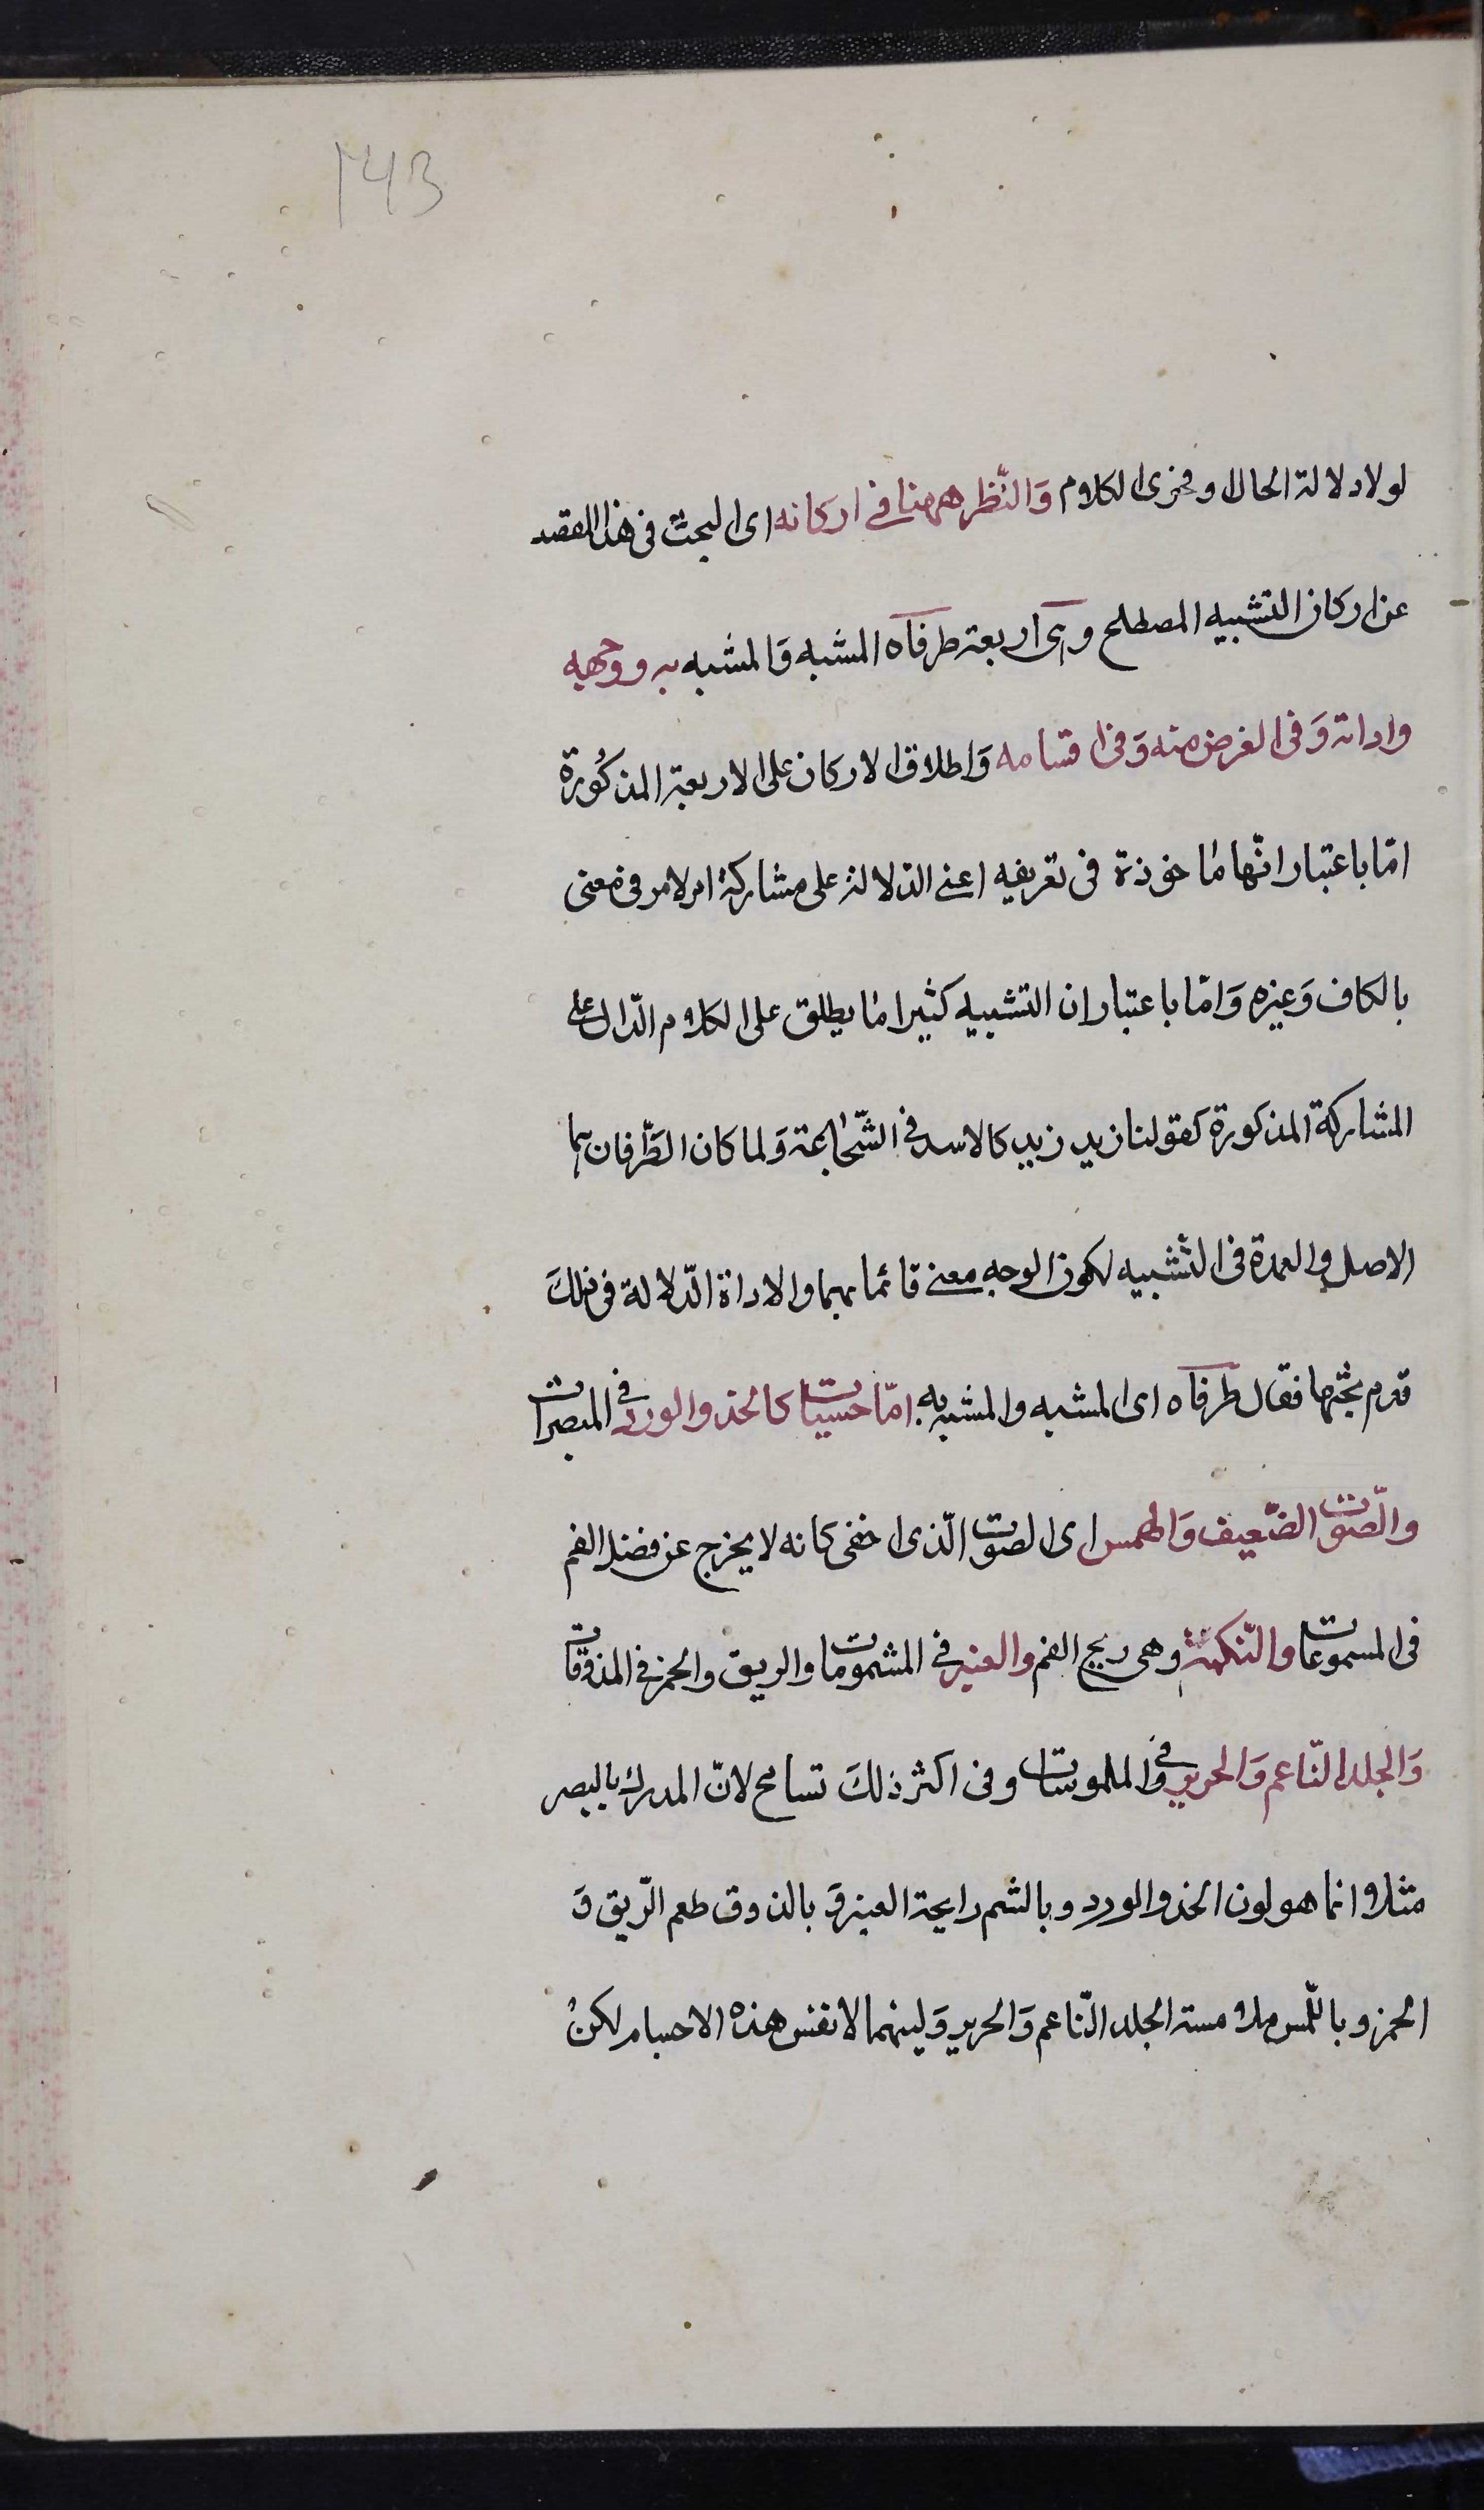 143
لولا دلالة الحال وفحوى الكلام وَالنّظر ههنا في اركانه اى البحث فى هذا المقصد
عن اركان التشبيه المصطلح وهى اربعة طرفاه المشبه وَالمشبه به ووجهه
واداته وَفى الغرض منه وَفى اقسامه وَاطلاق الاركان على الاربعة المذكُورة
امّا باعتبار انّها ماخوذة فى تعريفه اعنى الدّلالة على مشاركة امر لامر فى معنى
بالكاف وَغيره وَامّا باعتبار ان التشبيه كثيرا ما يطلق على الكلام الدّال على
المشاركة المذكورة كقولنا زيد زيد كالاسد في الشّجاعة وَلما كان الطّرفان هما
الاصل والعمدة فى التّشبيه لكون الوجه معنى قائما بهما والاداة الدّلالة فى ذلكَ
قدم بحثهما فقال طرفاه اى المشبه والمشبه به امّا حسيات كالخد والورد في المبصرات
والصّوت الضّعيف وَالهمس اى الصوت الّذى اخفى كانه لا يخرج عن فضل الفم
فى المسموعات والنّكهة وهى ريح الفم والعنبر في المشمومات والريق والخمر في المذوقات
وَالجلد النّاعم وَالحرير في والملموسات وفى اكثر ذلكَ تسامح لانّ المدرك بالبصر
مثلا وانما هو لون الخد والورد وبالشم رايحة العنبر وَبالذوق طعم الرّيق وَ
الخمر وباللّمس ملامسة الجلد النّاعم وَالحرير وَلينهما لا نفس هذه الاجسام لكنْ